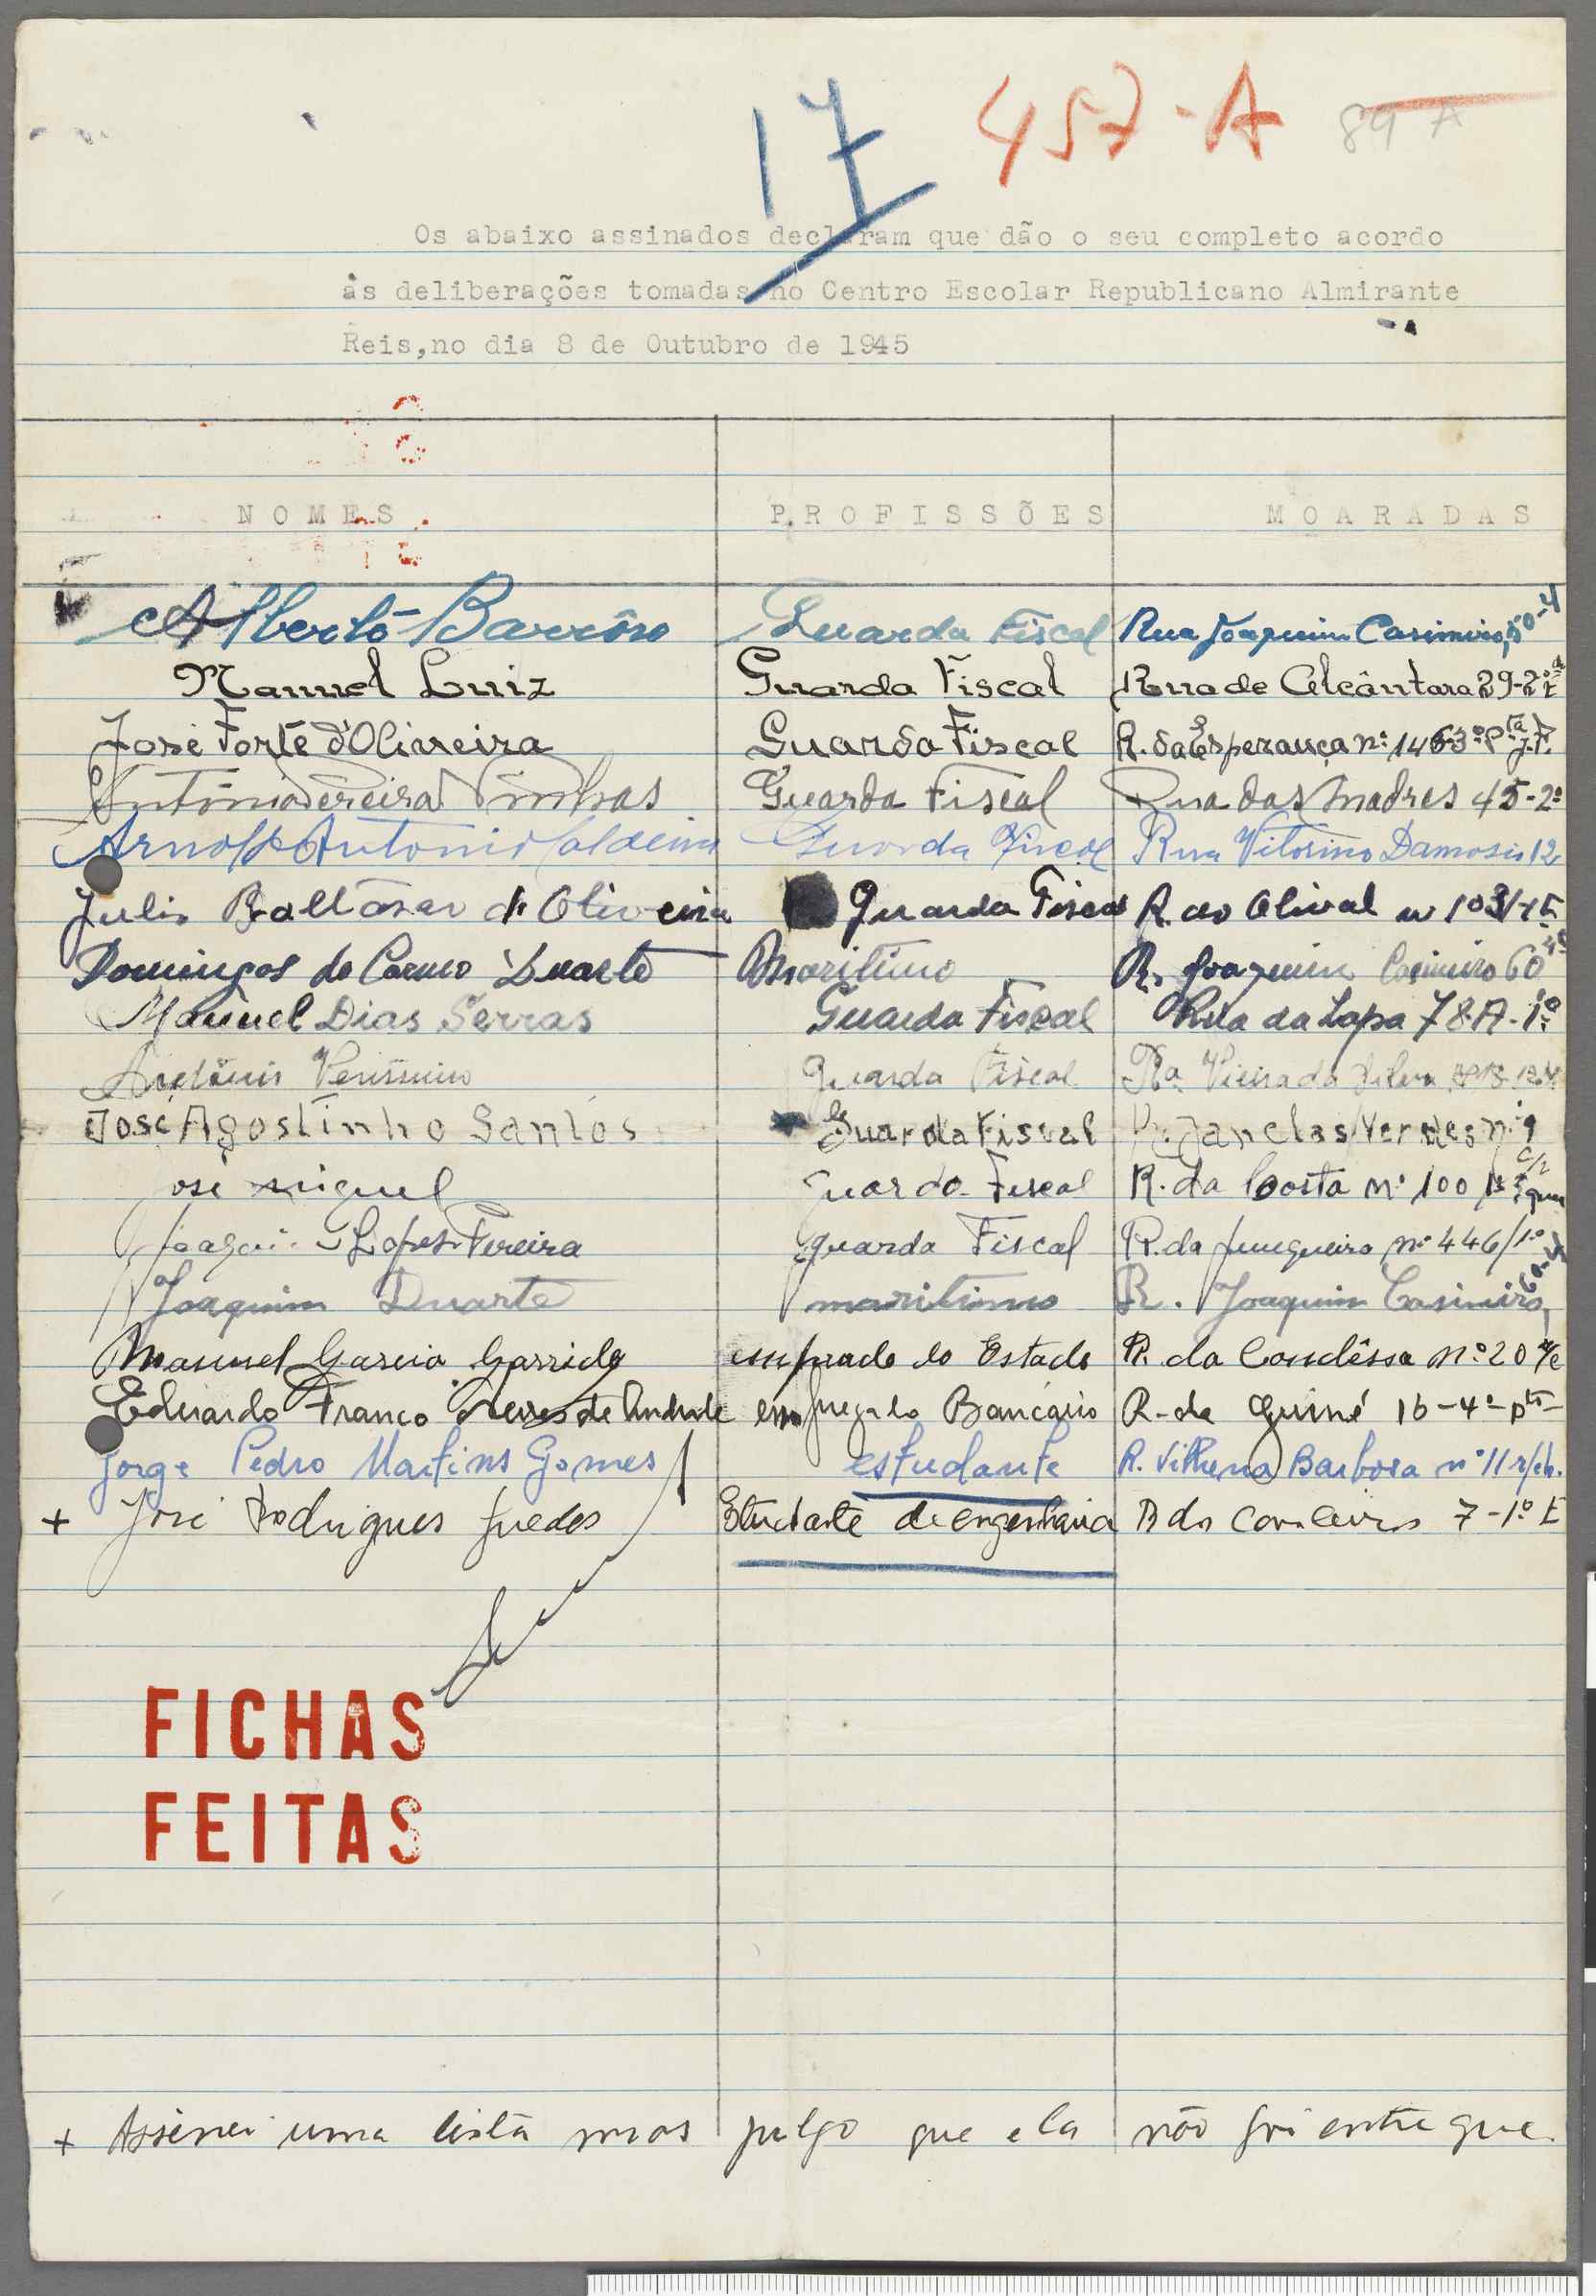 17 457-A 89 A
Os abaixo assinados declaram que dão o seu completo acordo
ás deliberações tomadas no Centro Escolar Republicano Almirante
Reis, no dia 8 de Outubro de 1945
NOMES PROFISSÕES MOARADAS
Alberto Barrôso Guarda Fiscal Rua Joaquim Casimiro, 50-4
Manuel Luiz Guarda Fiscal Rua de Alcântara 29-2º
José Forte d'Oliveira Guarda Fiscal R. da Esperança nº 146-3º
António Pereira Guarda Fiscal Rua das Madres 45-2º
António Caldeira Guarda Fiscal Rua Vitorino Damasio 12
Julio Baltasar de Oliveira Guarda Fiscal R. do Olival
Domingos do Carmo Duarte Maritimo R. Joaquim Casimiro 60
Manuel Dias Serras Guarda Fiscal Rua da Lapa 78-A-1º
António Verissimo Guarda Fiscal Rª Vieira da Silva
José Agostinho Santos Guarda Fiscal R. Janelas Verdes nº 9
José Miguel Guarda Fiscal R. da Costa nº 100
Joaquim Lopes Pereira guarda Fiscal R. da Junqueira nº 446/1º
Joaquim Duarte maritimo R. Joaquim Casimiro, 60-4
Manuel Garcia Garrido empregado do Estado R. da Condêssa nº 20 r/c
Eduardo Franco Neves de Andrade empregado Bancário R. da Guiné 16-4º
Jorge Pedro Martins Gomes estudante R. Vilhena Barbosa nº 11 r/ch.
+ José Rodrigues Guedes Estudante de engenharia 7-1º E
FICHAS
FEITAS
+ Assinei uma lista mas julgo que ela não foi entregue.